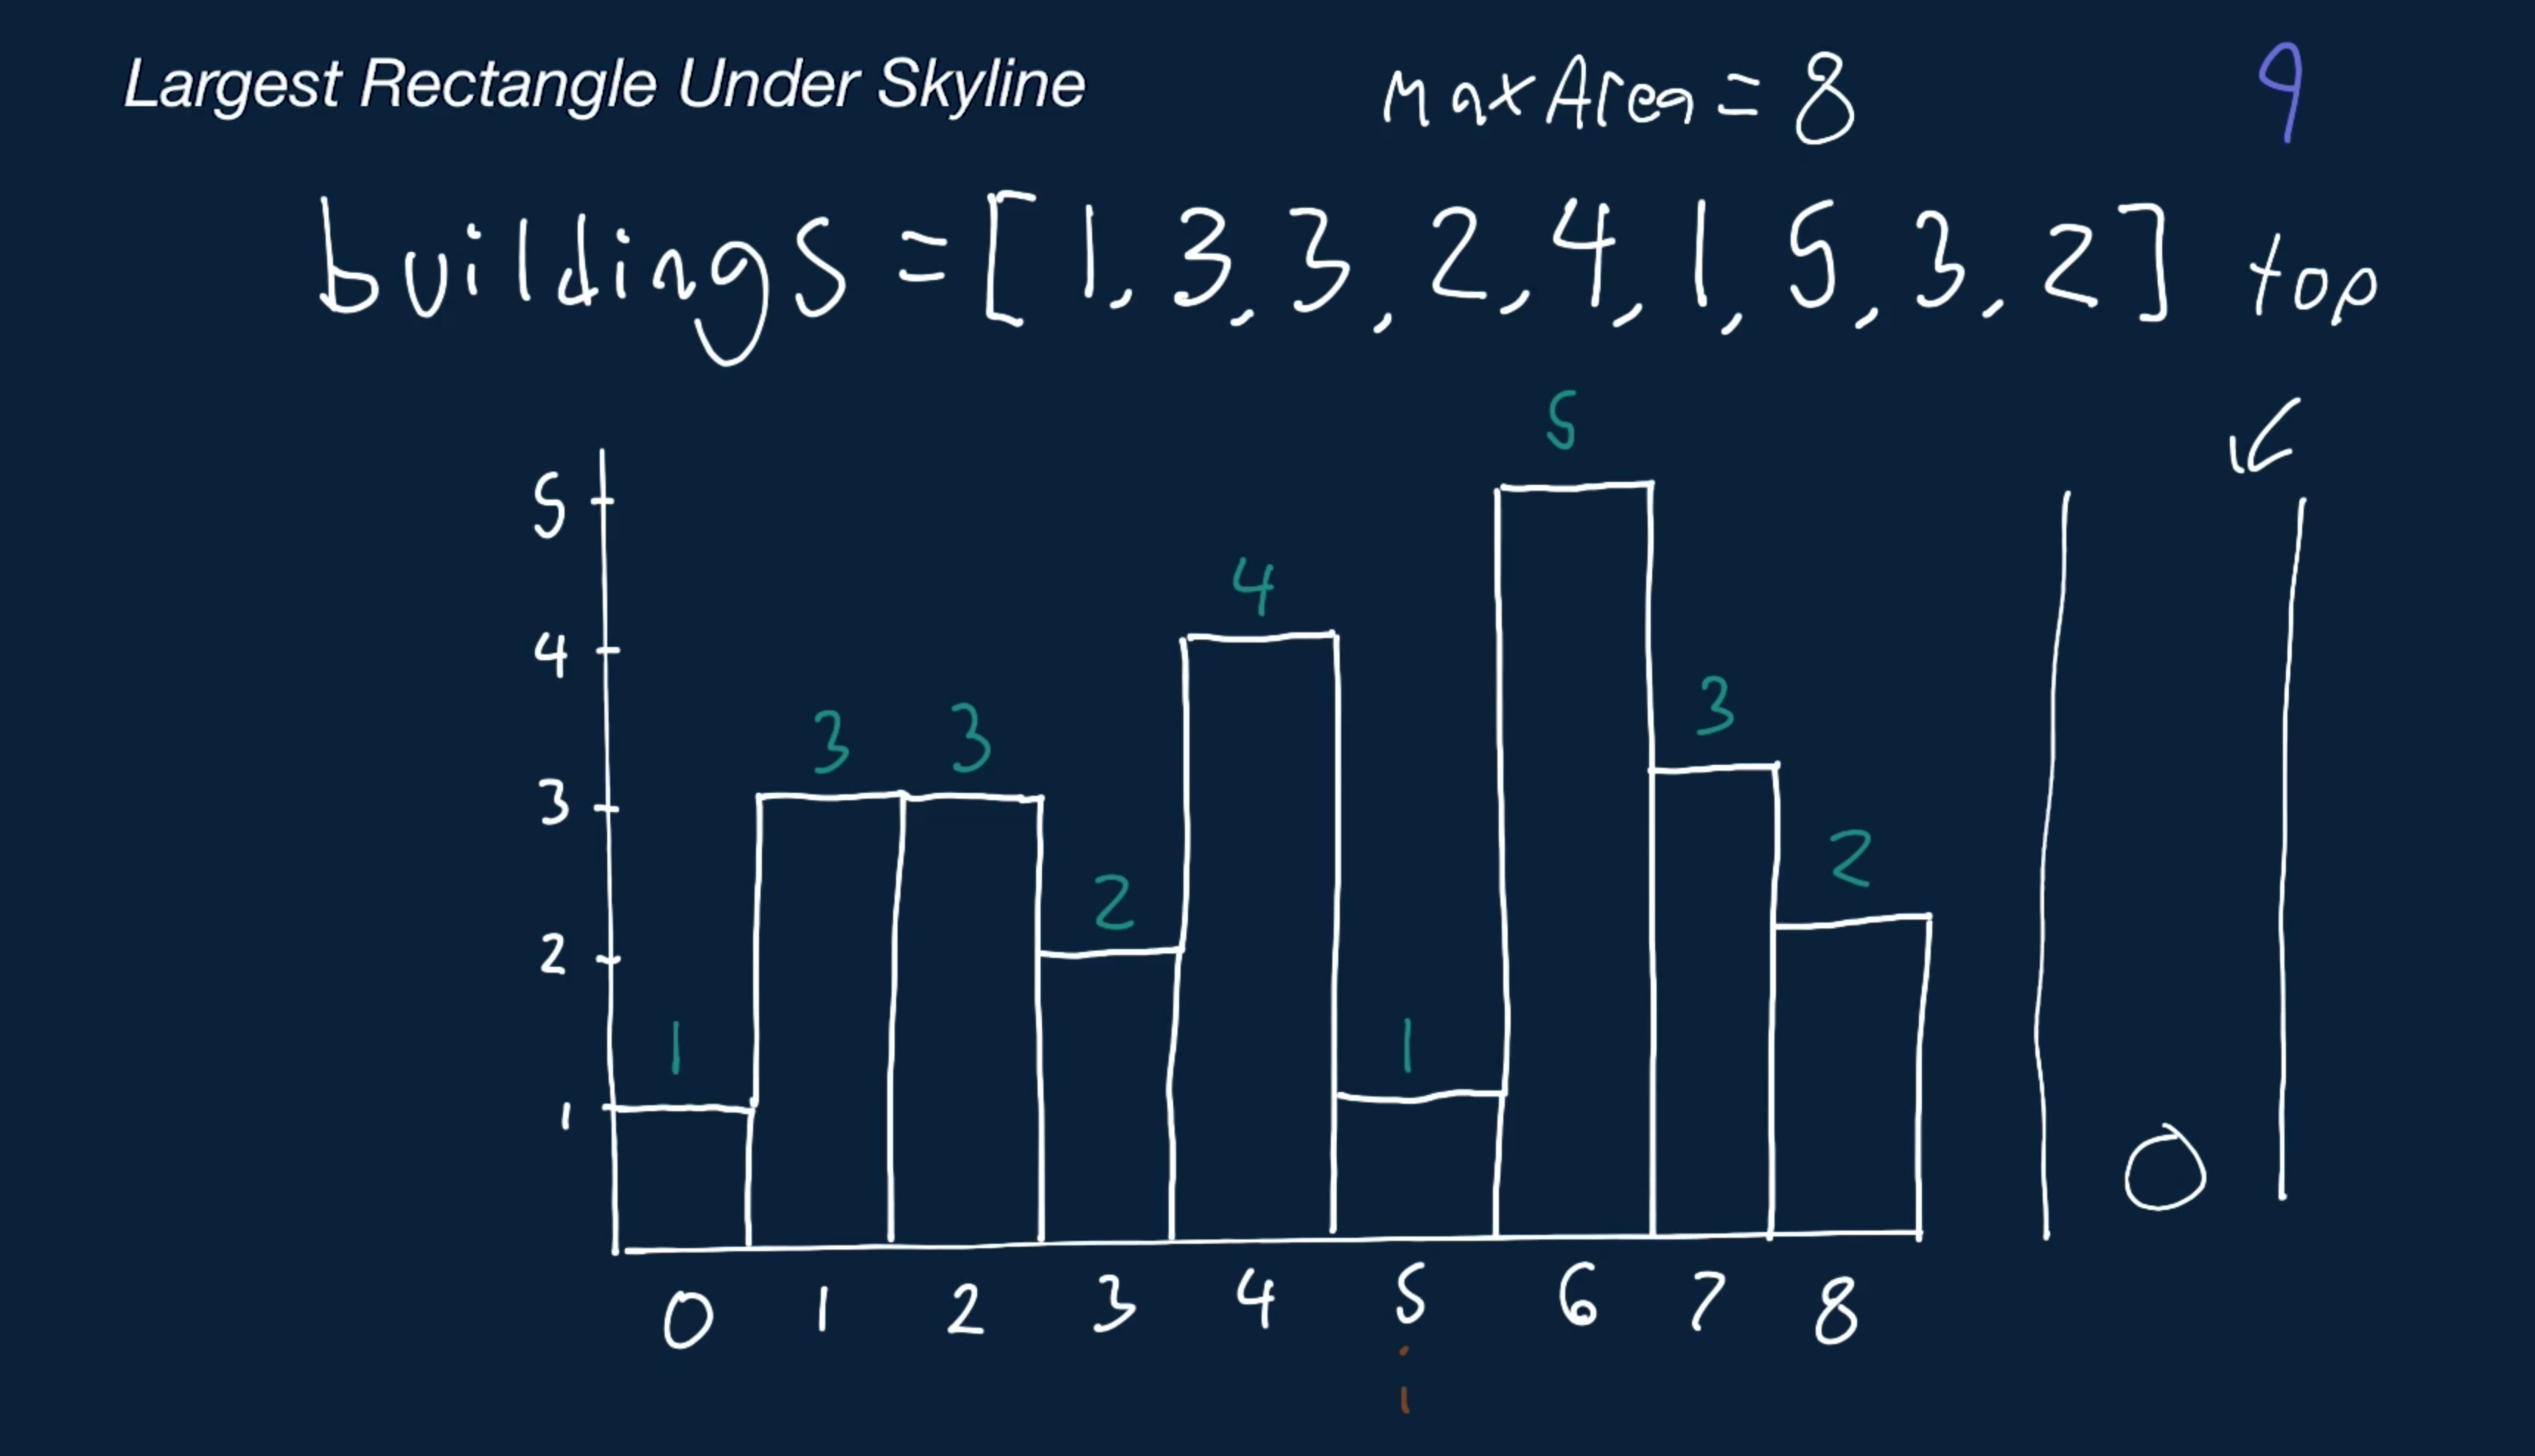 Largest Rectangle Under Skyline MaxArea = 8 9
buildings = [1, 3, 3, 2, 4, 1, 5, 3, 2] top
5
5
4
4
3
3 3
3
2
2
2
1
1
1
0
0 1 2 3 4 5 6 7 8
i